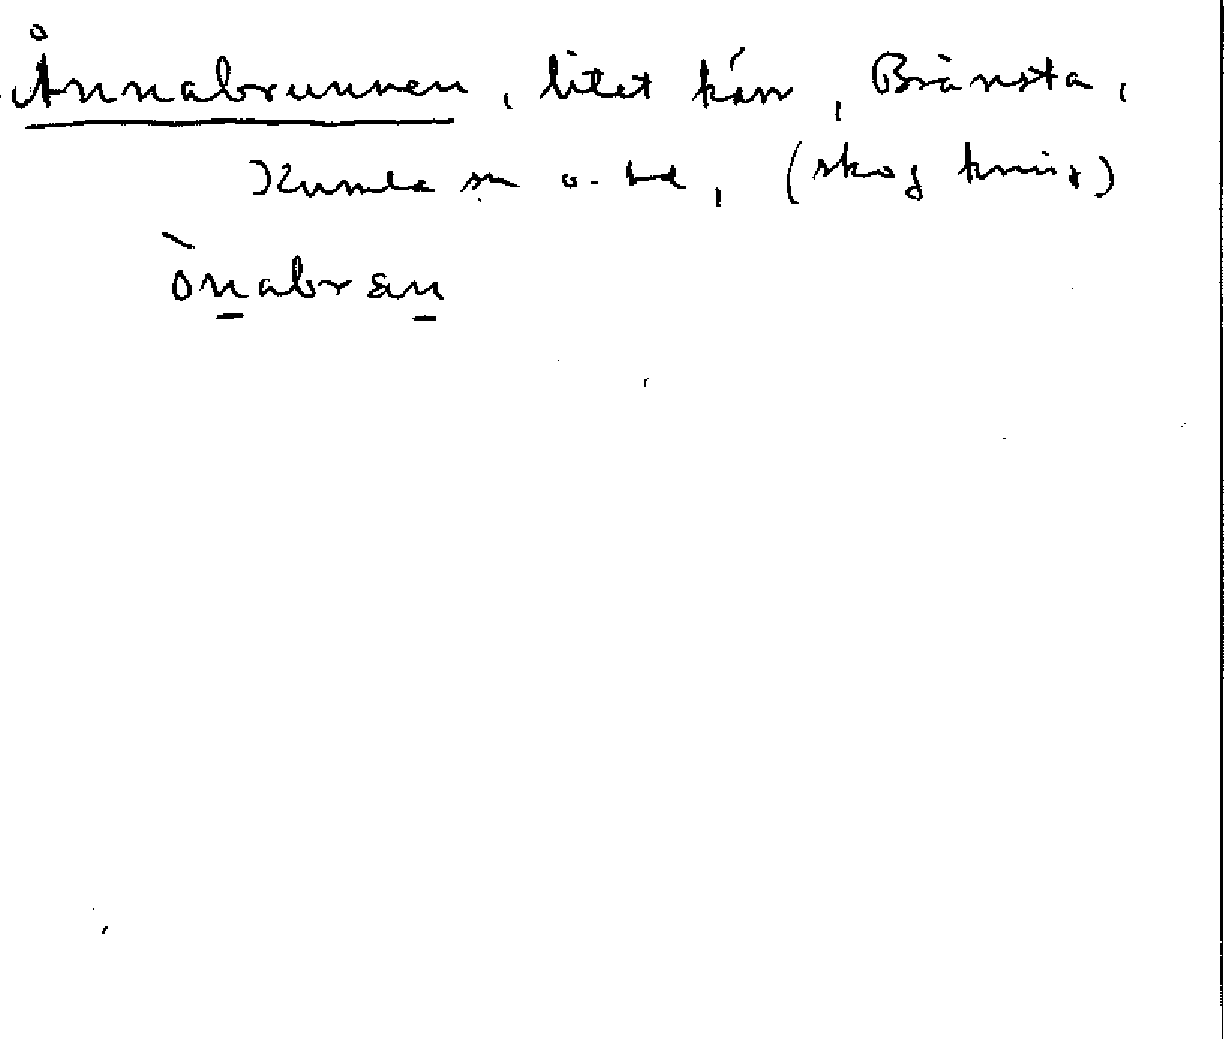 Ånnabrunnen, litet kärr, Brånsta,
Kumla sn o. hd, (skog kring)
ònabran